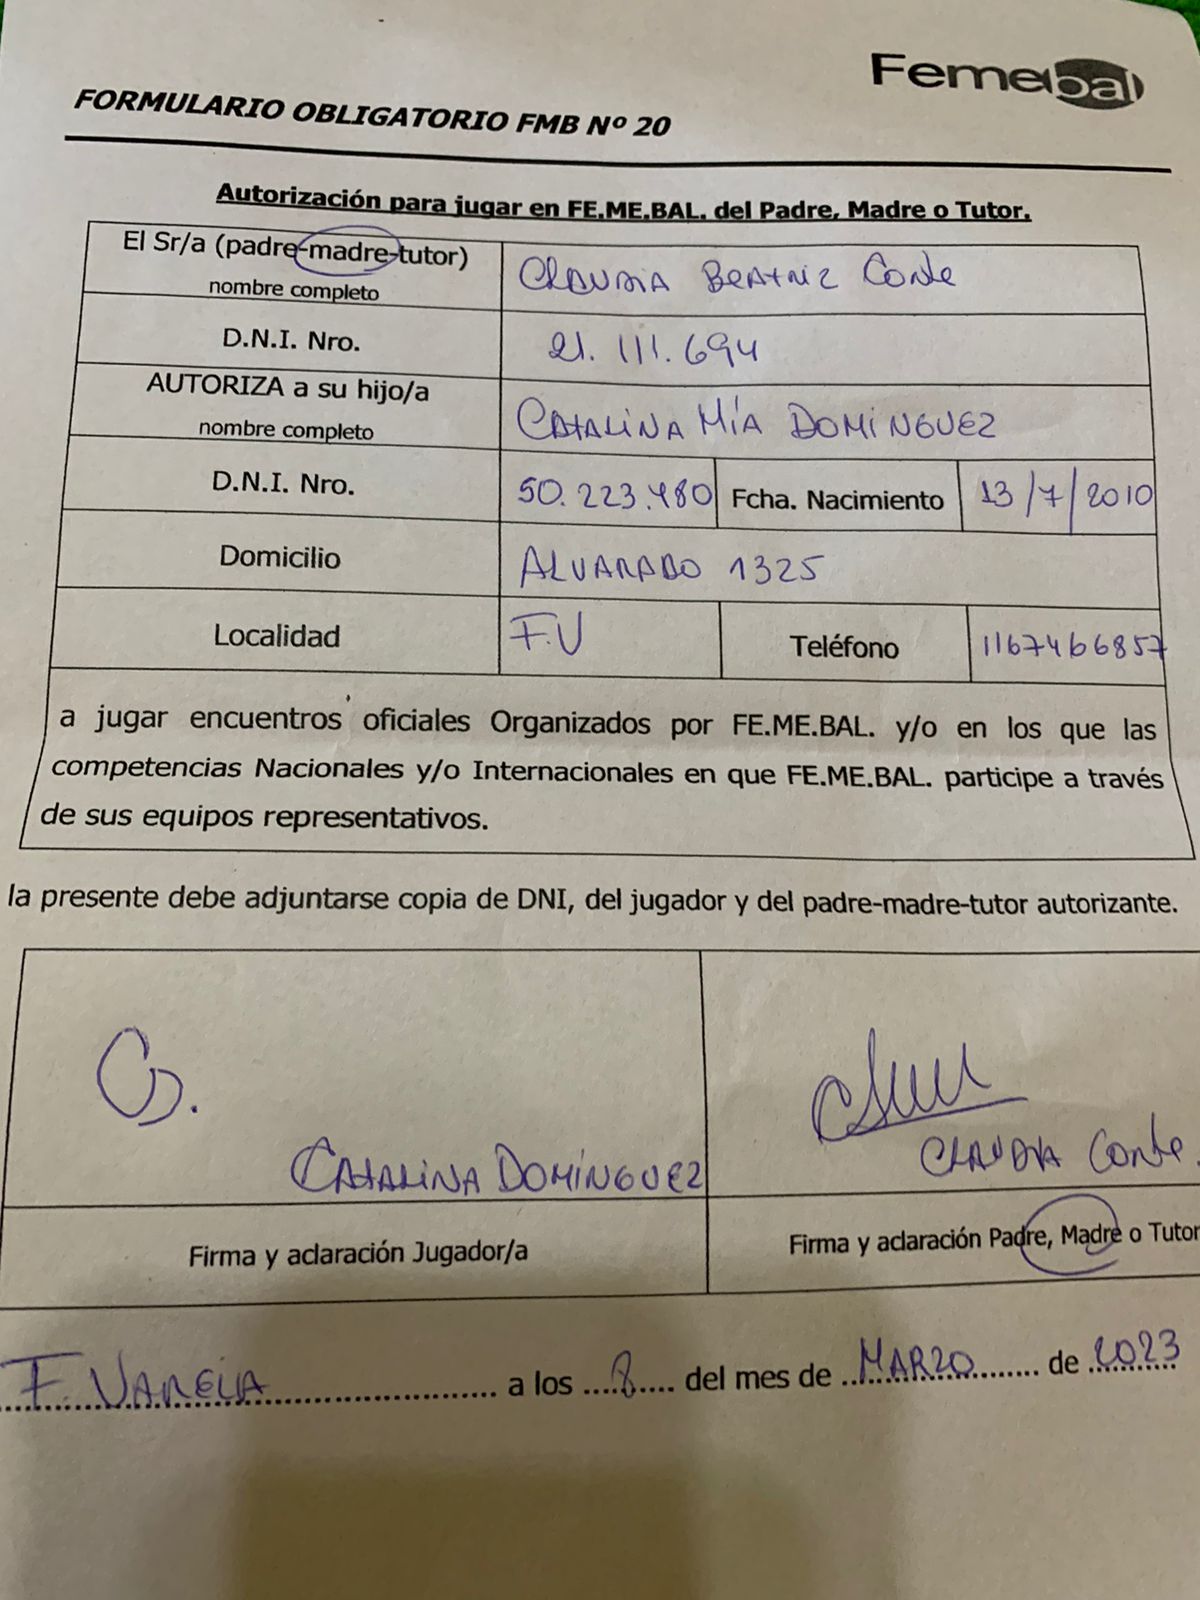 Femebal
FORMULARIO OBLIGATORIO FMB Nº 20
Autorización para jugar en FE.ME.BAL. del Padre, Madre o Tutor.
El Sr/a (padre-madre-tutor) CLAUDIA BEATRIZ Conte
nombre completo
D.N.I. Nro. 21.111.694
AUTORIZA a su hijo/a CATALINA MÍA DOMINGUEZ
nombre completo
D.N.I. Nro. 50.223.480 Fcha. Nacimiento 13/7/2010
Domicilio ALVARADO 1325
Localidad F.V Teléfono 1167466857
a jugar encuentros oficiales Organizados por FE.ME.BAL. y/o en los que las
competencias Nacionales y/o Internacionales en que FE.ME.BAL. participe a través
de sus equipos representativos.
la presente debe adjuntarse copia de DNI, del jugador y del padre-madre-tutor autorizante.
CD.
CATALINA DOMÍNGUEZ CLAUDIA Conte.
Firma y aclaración Jugador/a Firma y aclaración Padre, Madre o Tutor
F. VARELA a los 8 del mes de MARZO de 2023